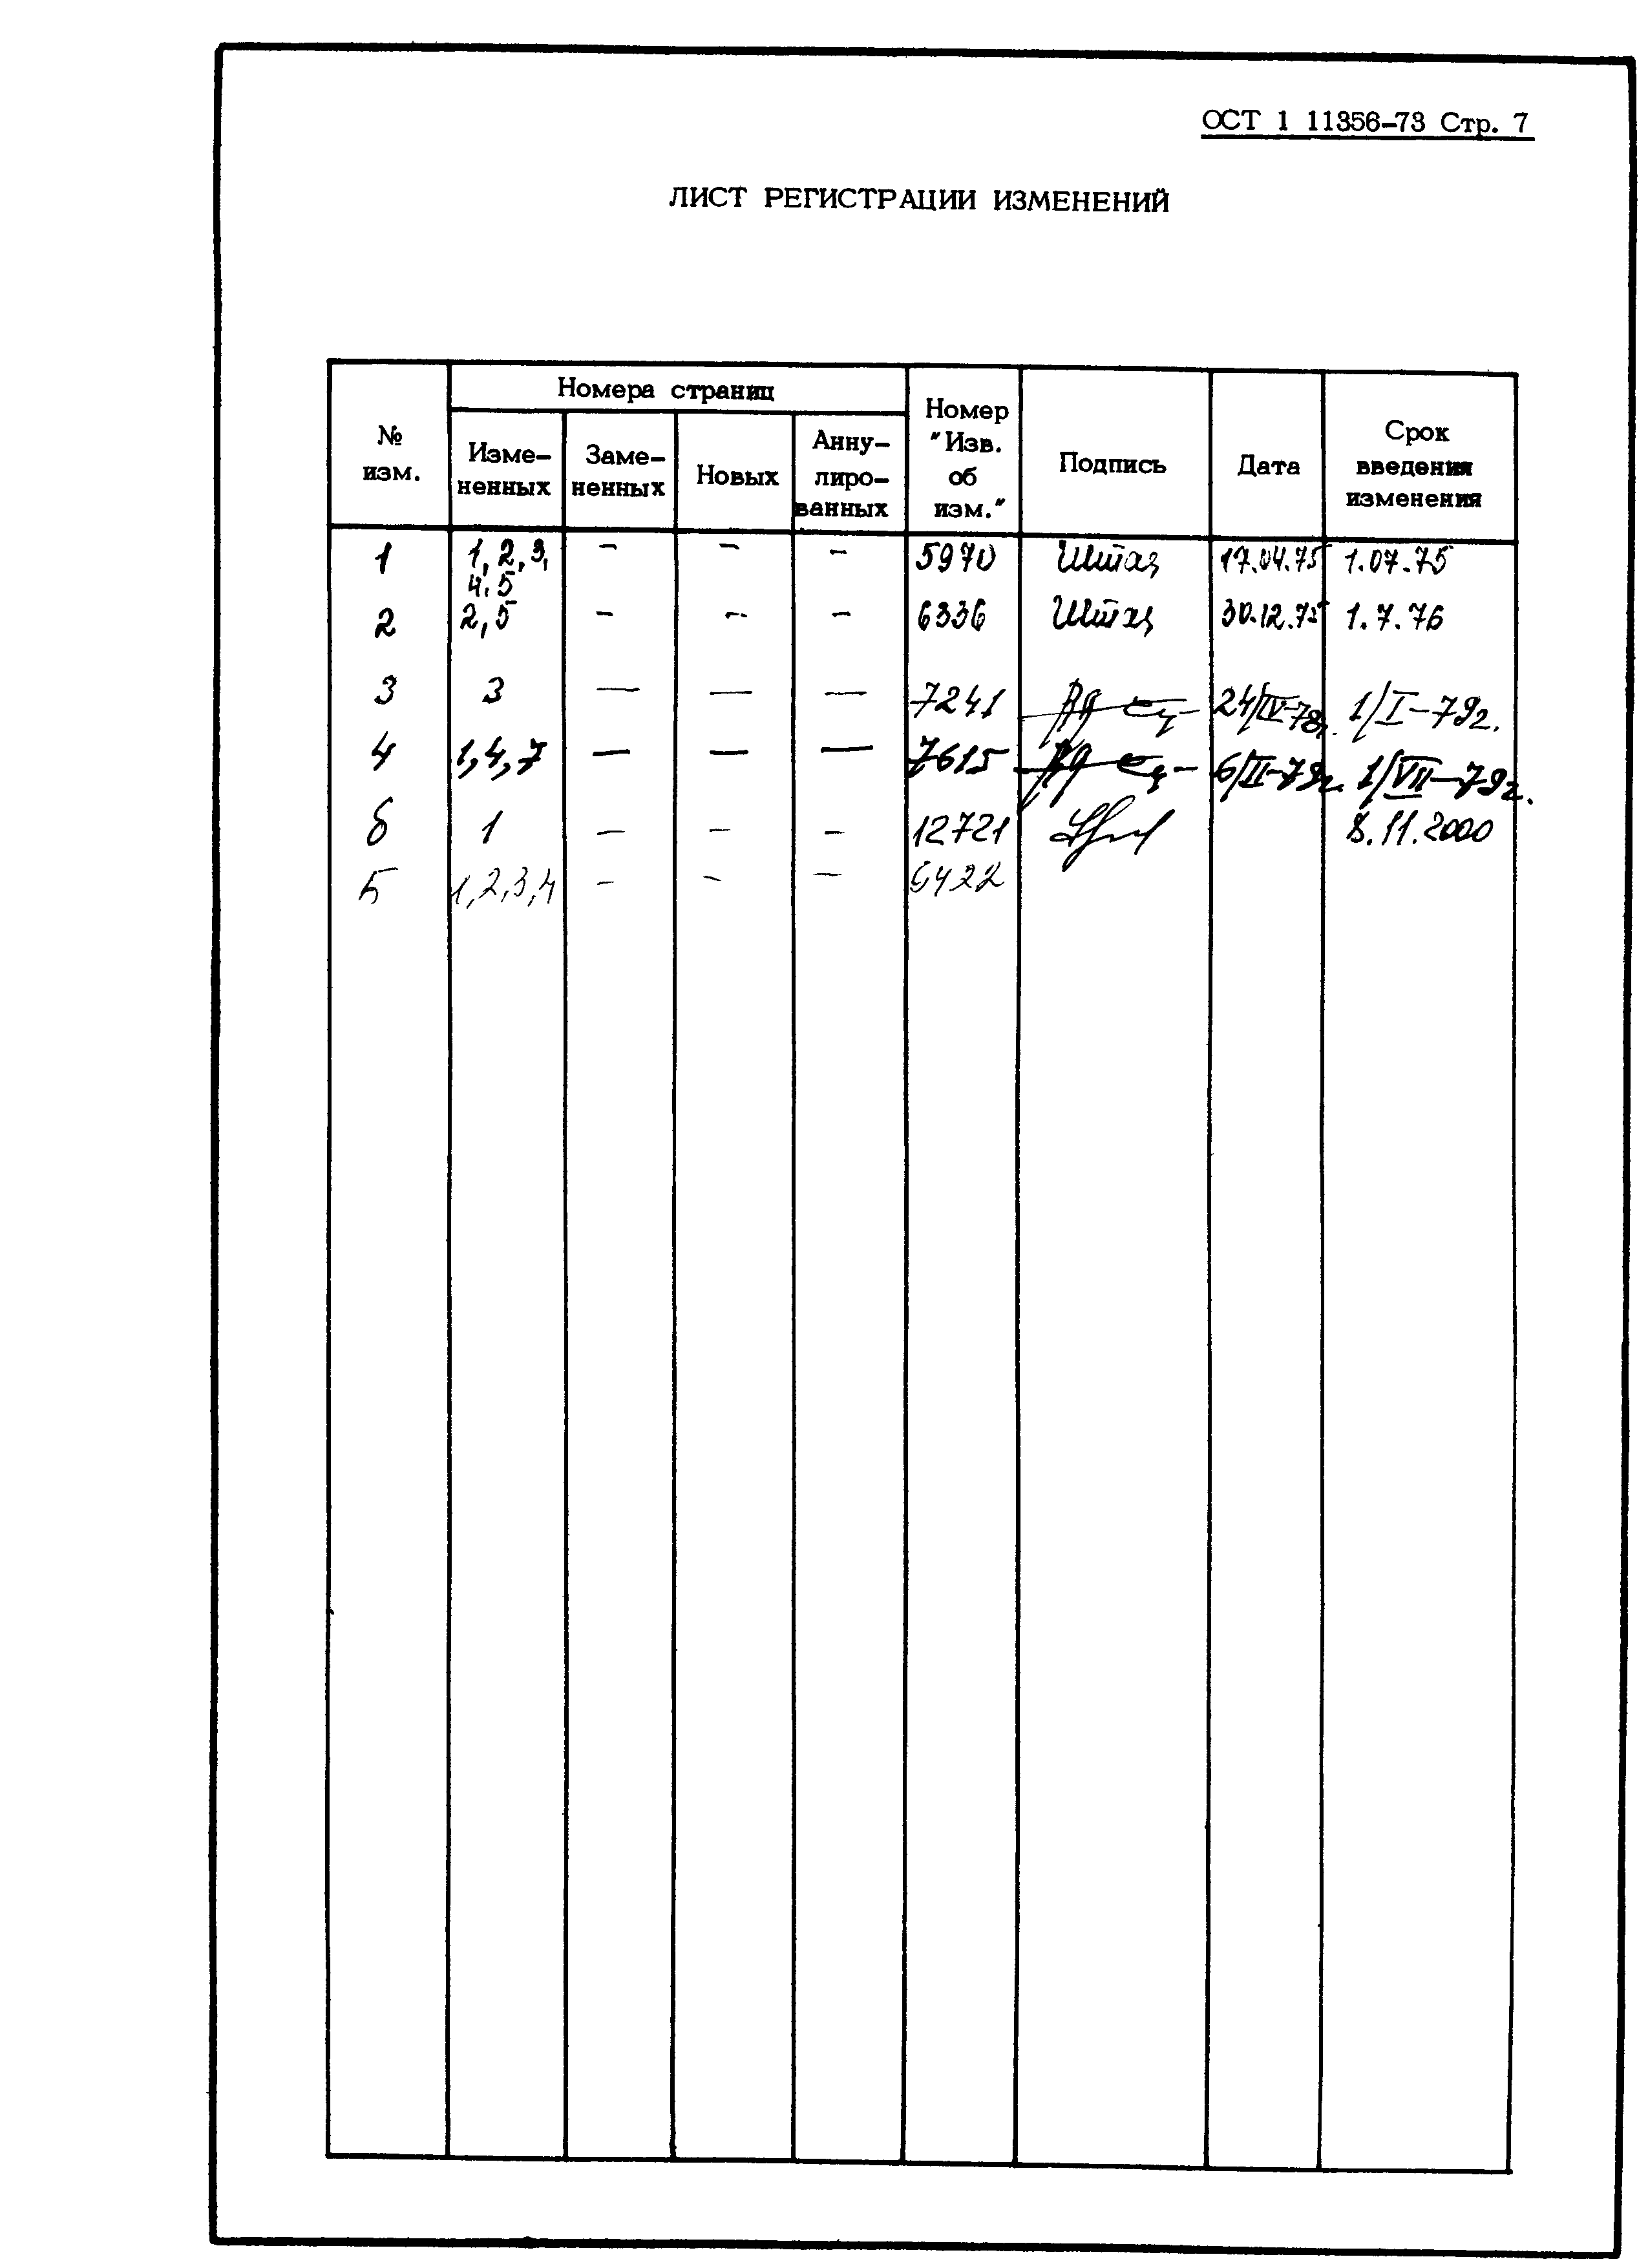 ОСТ 1 11356-73 Стр. 7
ЛИСТ РЕГИСТРАЦИИ ИЗМЕНЕНИЙ
№ изм.
Номера страниц
Изме-
ненных
Заме-
ненных
Новых
Анну-
лиро-
ванных
Номер
"Изв.
об
изм."
Подпись
Дата
Срок
введения
изменения
1 1, 2, 3, 4, 5 - - - 5970 17.04.75 1.07.75
2 2, 5 - - - 6336 30.12.75 1.7.76
3 3 — — — 7241 24/IV-78г. 1/I-79г.
4 1, 4, 7 — — — 7615 6/II-79г. 1/VII-79г.
6 1 - - - 12721 8.11.2000
5 1, 2, 3, 4 - - - 6422